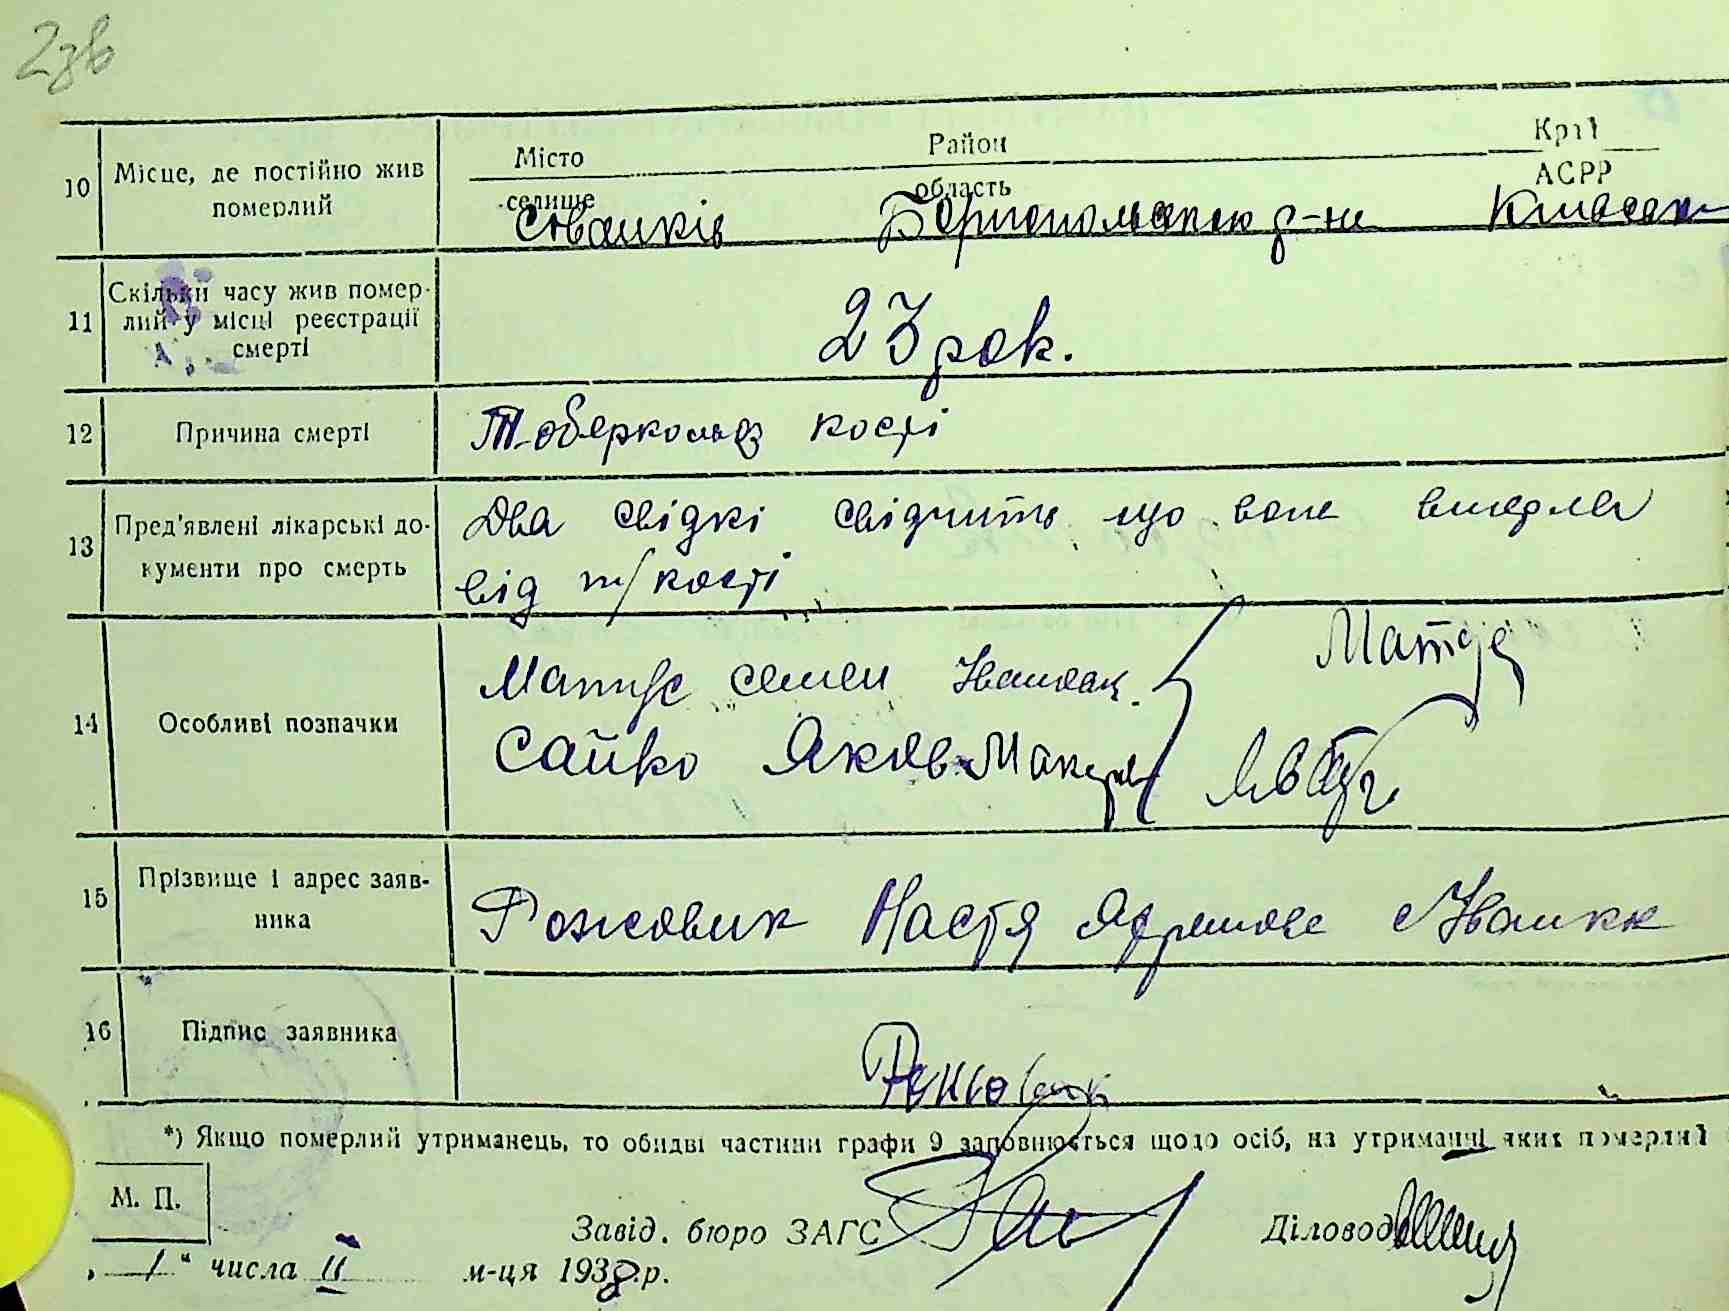 2зв
10 Місце, де постійно жив померлий
Місто Район Край
селище область АСРР
с Іванків р-ну
11 Скільки часу жив помер-
лий у місці реєстрації
смерті
23 рок.
12 Причина смерті
Тоберкольоз кості
13 Пред'явлені лікарські до-
кументи про смерть
Два свідкі свідчить що вона вмерла
від т/кості
14 Особливі позначки
семен
Сайко Яков
15 Прізвище і адрес заяв-
ника
Рожовик Настя с Іванки
16 Підпис заявника
*) Якщо померлий утриманець, то обидві частини графи 9 заповнюється щодо осіб, на утриманні яких померлий
М. П.
Завід. бюро ЗАГС
Діловод
„ 1 " числа II м-ця 1938.р.